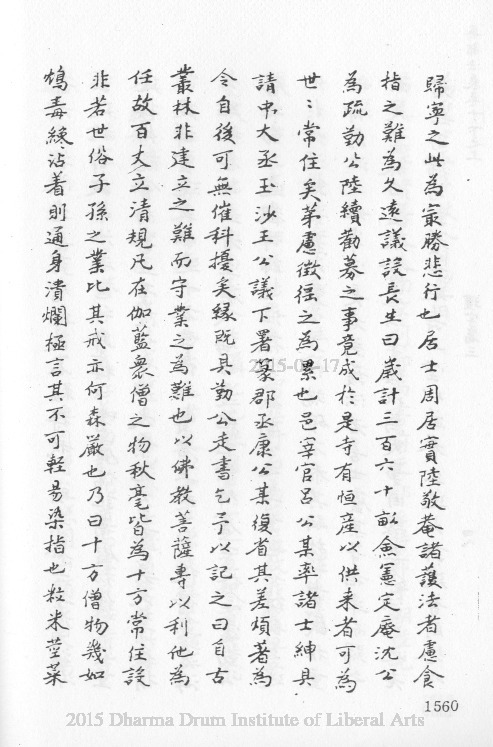 歸寧之此為㝡勝悲行也居士周居實陸敬菴諸護法者慮食
指之難為久遠議設長生田歲計三百六十畝僉憲定庵沈公
為疏勤公陸續勸募之事竟成於是寺有恒産以供来者可為
世〻常住矣第慮徵徭之為累也邑宰官吕公某率諸士紳具
請中大丞玉沙王公議下署篆郡丞康公某復省其差煩著為
令自後可無催科擾矣縁既具勤公走書乞予以記之曰自古
叢林非建立之難而守業之為難也以佛教菩薩專以利他為
任故百丈立清規凡在伽藍衆僧之物秋毫皆為十方常住設
非若世俗子孫之業比其戒亦何森嚴也乃曰十方僧物幾如
鴆毒纔沾着則通身潰爛極言其不可輕易染指也粒米莖菜
1560
2015-04-17
2015 Dharma Drum Institute of Liberal Arts